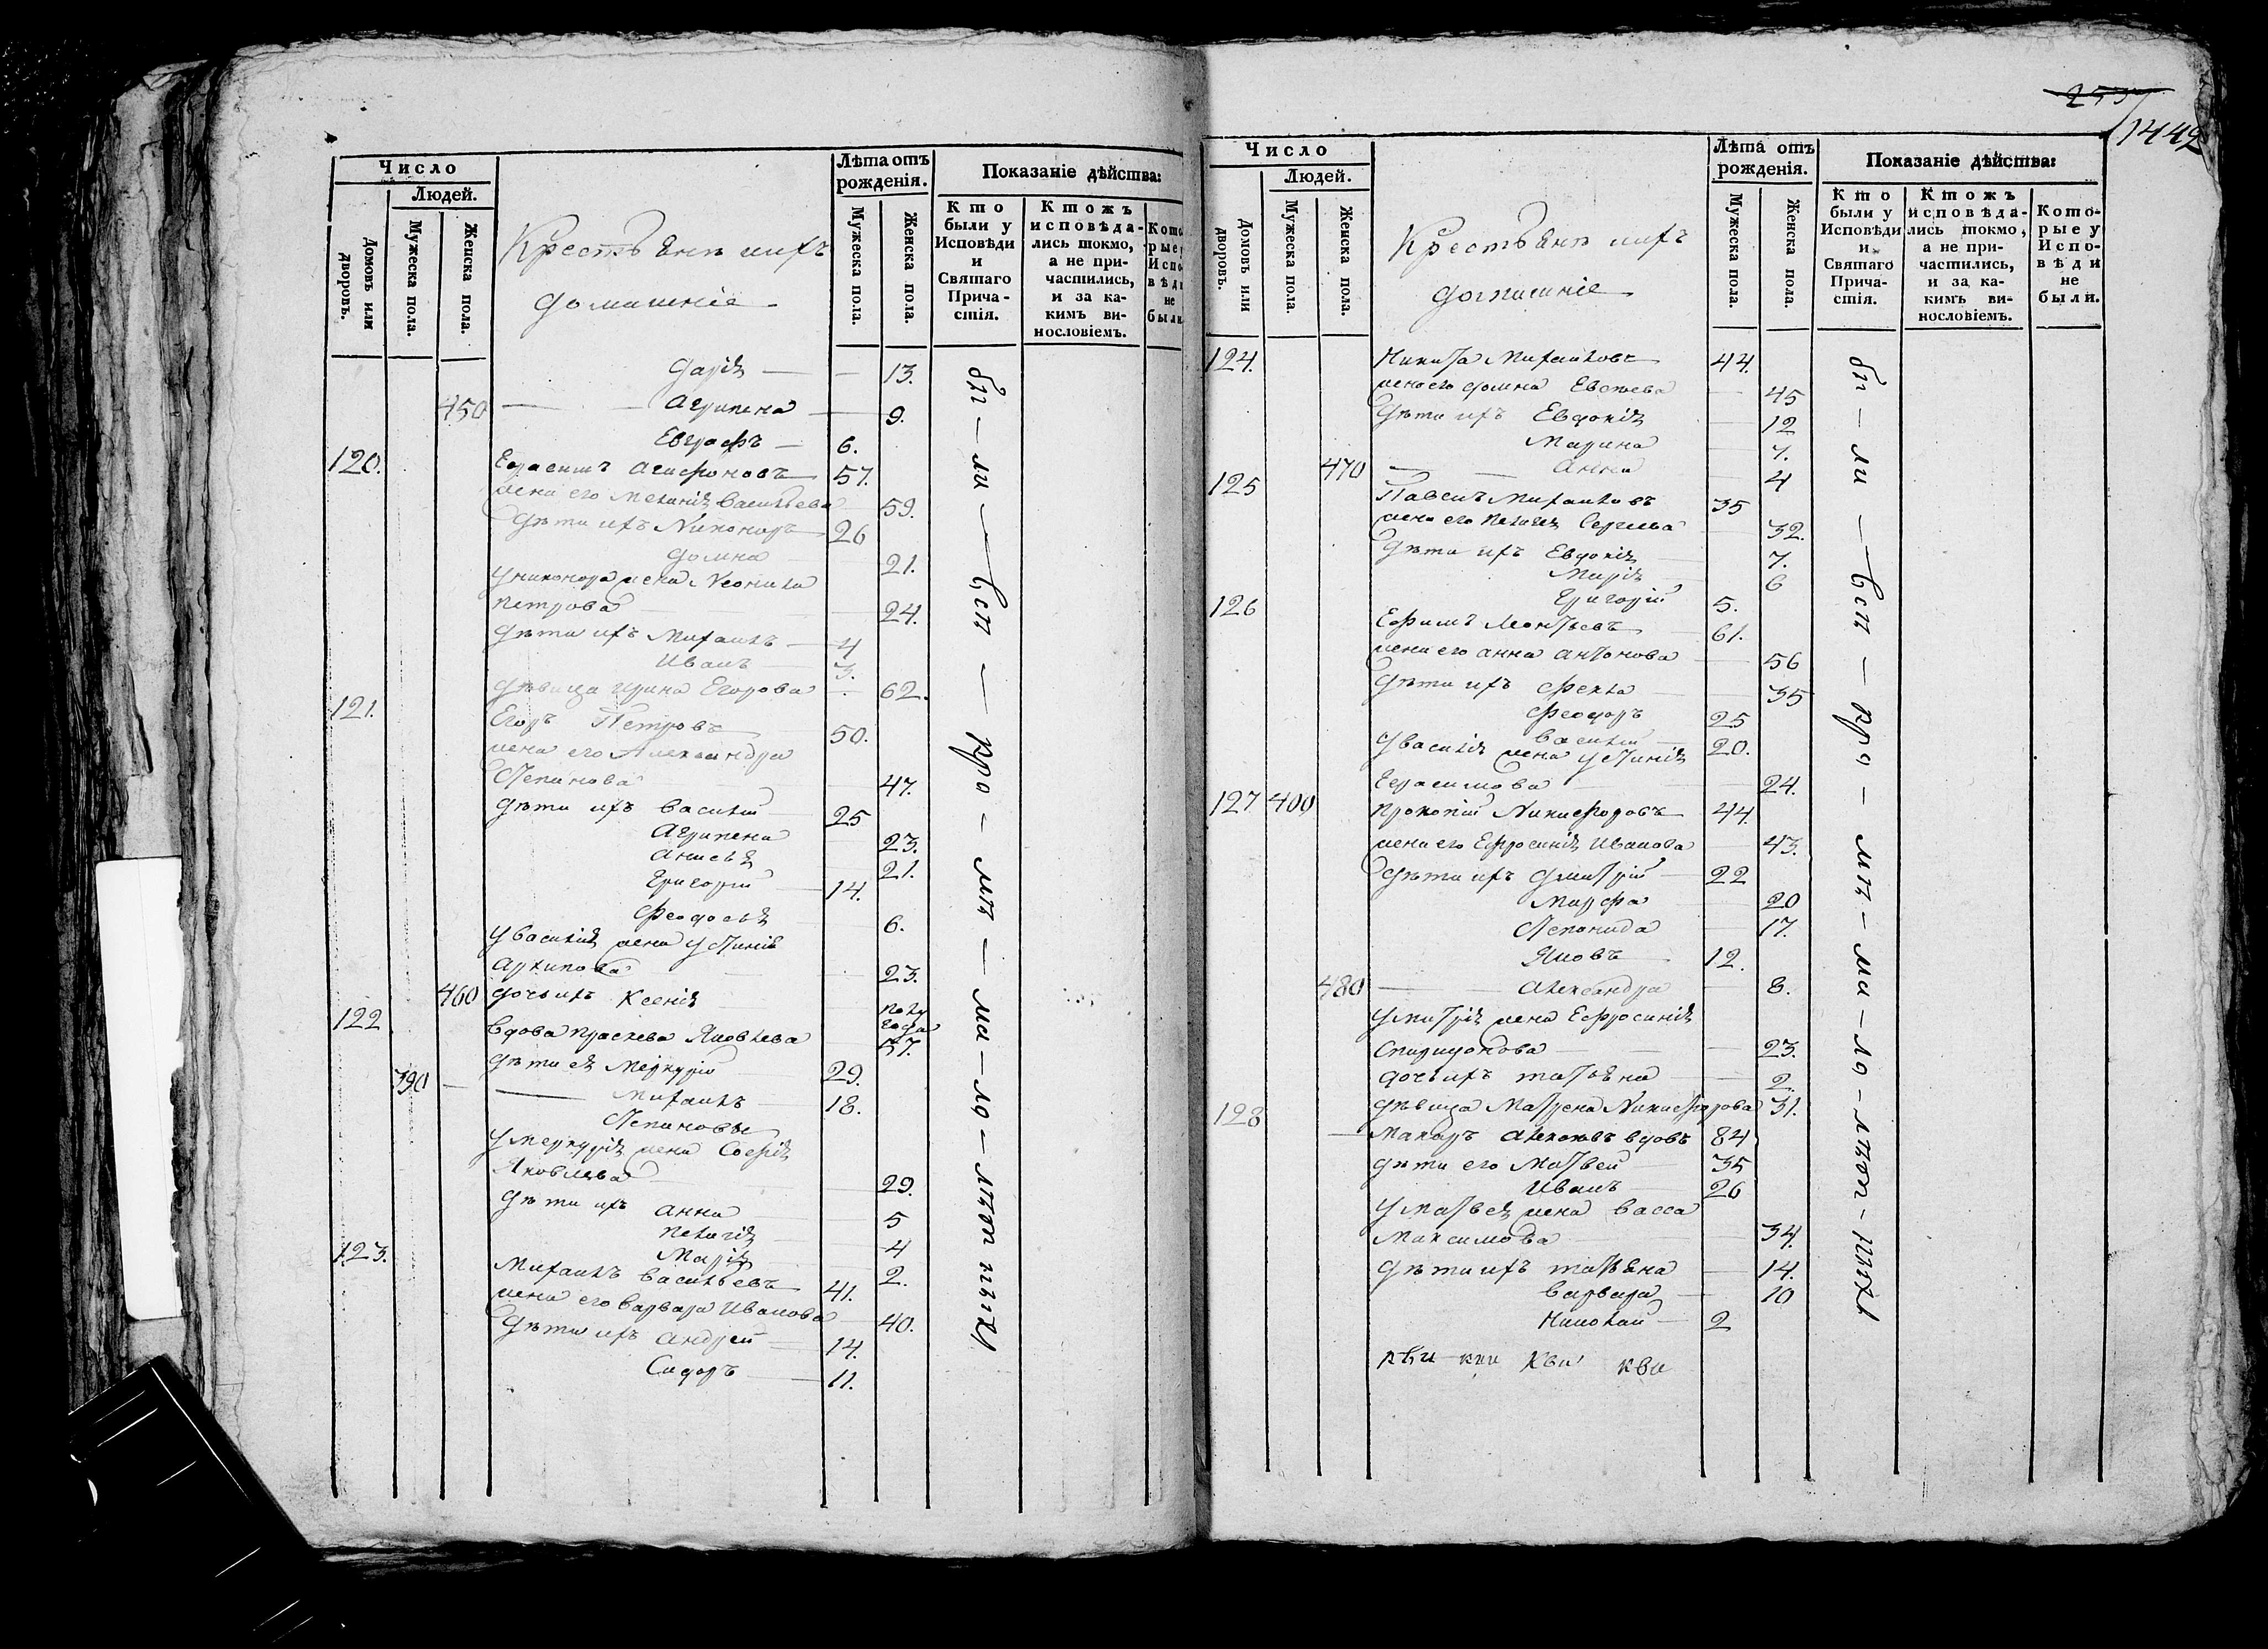 Число
Людей.
Домовъ или дворовъ.
Мужеска пола.
Женска пола.
Крестьяне ихъ
домашніе
Лѣта отъ рожденія.
Мужеска пола.
Женска пола.
Показаніе дѣйства:
Кто были у Исповѣди и Святаго Прича-стія.
Ктожъ исповѣда-лись токмо, а не при-частились, и за ка-кимъ ви-нословіемъ.
Кото рые у Испо вѣди не были
Дарія — 13.
450 Агрипена 9.
Евграфъ 6.
120. Герасимъ Агафоновъ 57.
жена его Меланія Васильева 59.
дѣти ихъ Никоноръ 26
Домна 21.
у Никонора жена Неонила
Петрова 24.
дѣти ихъ Михаилъ 4
Иванъ 3.
дѣвица Ирина Егорова 62.
121. Егоръ Петровъ 50.
жена его Александра
Степанова 47.
дѣти ихъ Василій 25
Агрипена 23.
Анисья 21.
Григорій 14.
Феодосья 6.
у Василія жена Устинія
Архипова 23.
460 дочь ихъ Ксенія полу года
122 вдова Праскева Яковлева 57.
дѣти ея Меркурій 29.
390 Михаилъ 18.
Степановы
у Меркурія жена Софія
Яковлева 29.
дѣти ихъ Анна 5
Пелагія 4
Марія 2.
123. Михаилъ Васильевъ 41.
жена его Варвара Иванова 40.
дѣти ихъ Андрей 14.
Сидоръ 11.
бы — ли — всѣ — кро — мѣ — ма — ло — лѣт ныхъ
1442
Число
Людей.
Домовъ или дворовъ.
Мужеска пола.
Женска пола.
Крестьяне ихъ
домашніе
Лѣта отъ рожденія.
Мужеска пола.
Женска пола.
Показаніе дѣйства:
Кто были у Исповѣди и Святаго Прича-стія.
Ктожъ исповѣда-лись токмо, а не при-частились, и за ка-кимъ ви-нословіемъ.
Кото-рые у Испо-вѣди не были.
124. Никита Михаиловъ 44.
жена его Домна Евсеева 45
дѣти ихъ Евдокія 12
Марина 7.
470 Анна 4
125 Павелъ Михаиловъ 35
жена его Пелагея Сергеева 32.
дѣти ихъ Евдокія 7.
Марія 6
Григорій 5.
126 Ефимъ Леонтьевъ 61.
жена его Анна Антонова 56
дѣти ихъ Фекла 35
Феодоръ 25
Василій 20.
у Василія жена Устинія
Герасимова 24.
127 400 Прокопій Никифоровъ 44.
жена его Ефросинія Иванова 43.
дѣти ихъ Дмитрій 22
Марфа 20
Степанида 17.
Яковъ 12.
480 Александра 8.
у Митрія жена Ефросинія
Спиридонова 23.
дочь ихъ Татьяна 2.
дѣвица Матрена Никифорова 31.
128 Макаръ Алексѣевъ вдовъ 84
дѣти его Матвей 35
Иванъ 26
у Матвея жена Васса
Максимова 34.
дѣти ихъ Татьяна 14.
Варвара 10
Николай 2
бы — ли — всѣ — кро — мѣ — ма — ло — лѣт — ныхъ